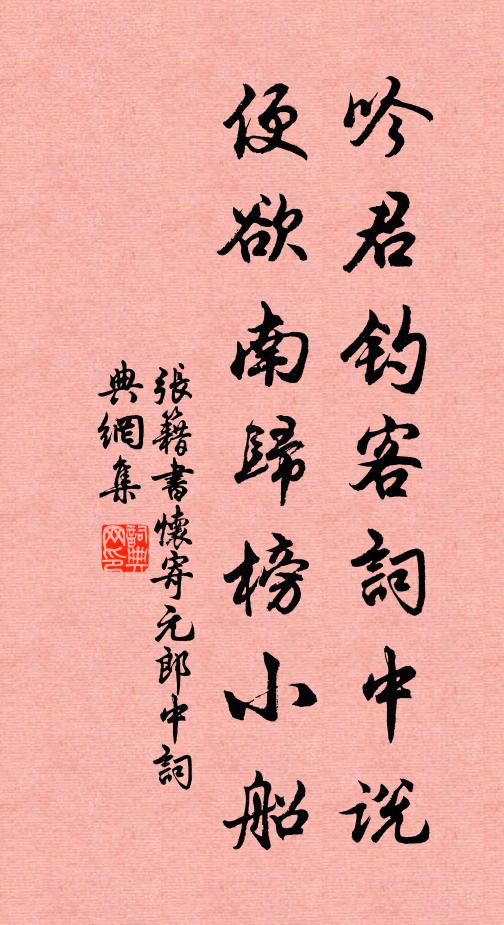 吟君釣客詞中说
便欲南歸榜小船
張籍書懷寄元郎中詞
典網集
詞典网印